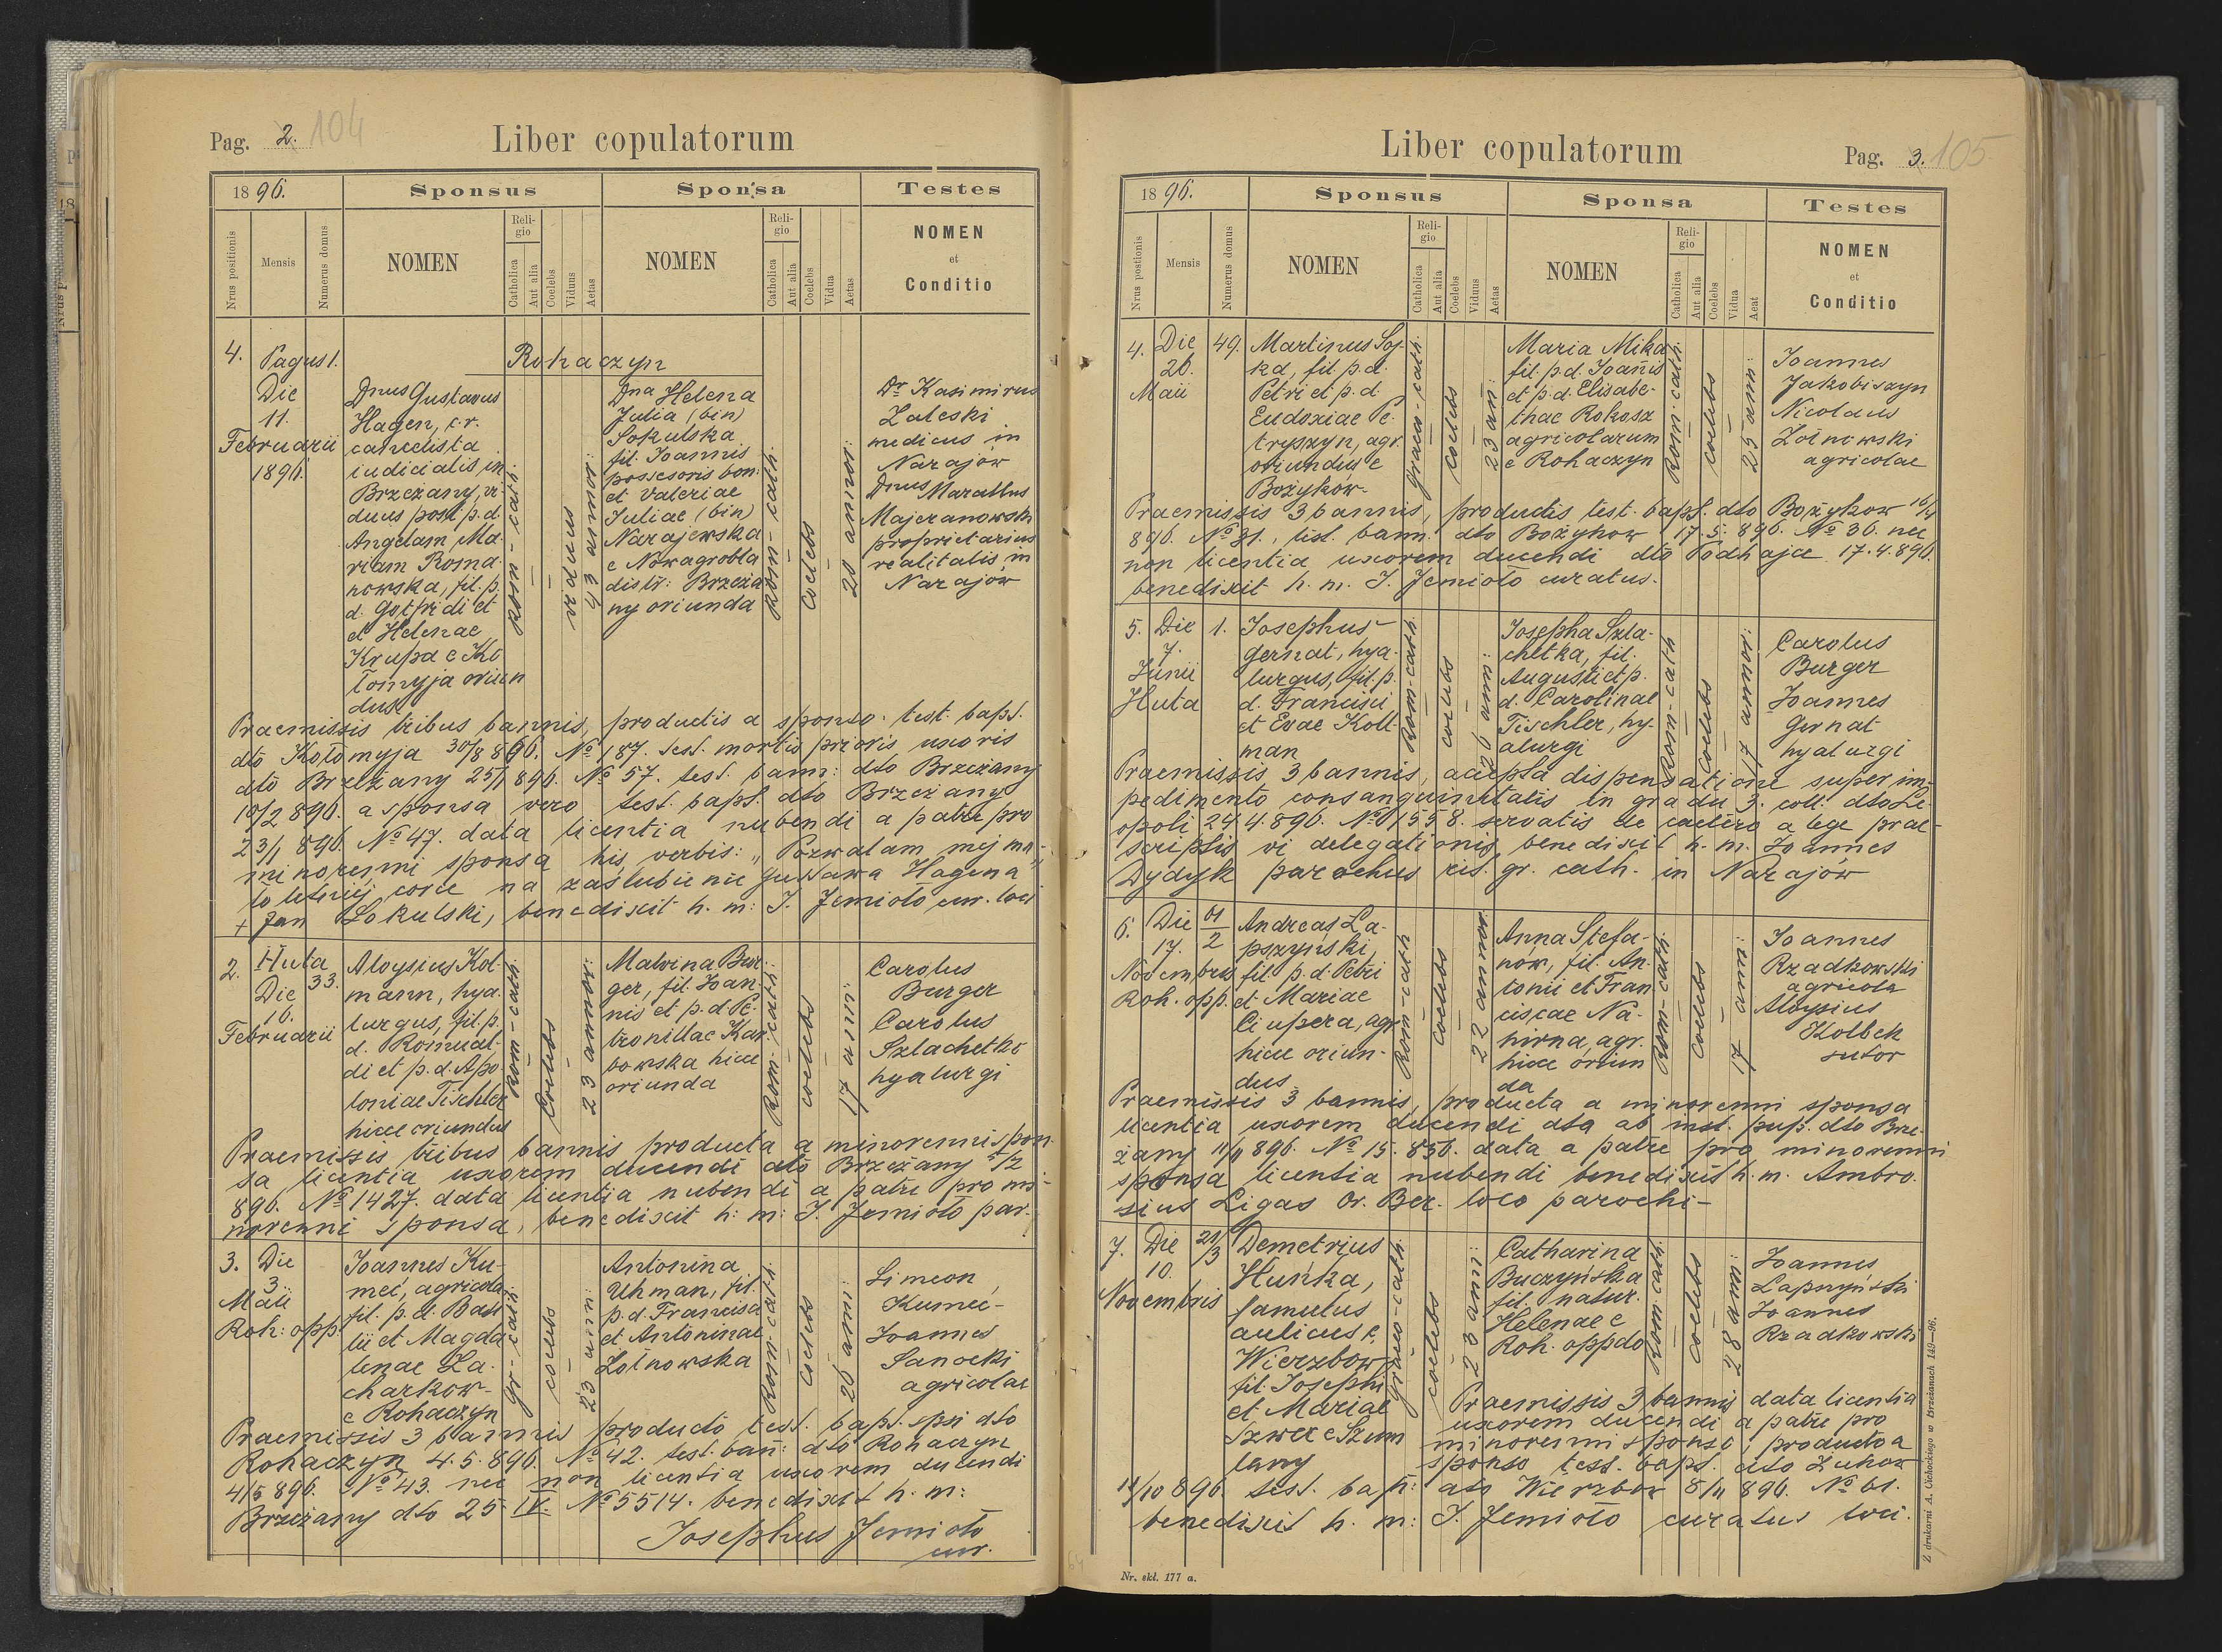 Pag. 2. 104
Liber copulatorum
1896.
Sponsus
Sponsa
Testes
Nrus positionis
Mensis
Numerus domus
NOMEN
Reli-
gio
Catholica
Aut alia
Coelebs
Viduus
Aetas
NOMEN
Reli-
gio
Catholica
Aut alia
Coelebs
Vidua
Aetas
NOMEN
et
Conditio
Pagus
Rohaczyn
Die
11.
Februarii
1896.
Dnus Gustavus
Hagen, c.r.
cancelista
iudicialis in
Brzeżany, vi-
duus post p.d.
Angelam Ma-
riam Roma-
nowska, fil. p.
d. Gotfridi et
et Helenae
Krupa e Ko-
łomyja oriun
dus
Rom-cath.
viduus
43 annor:
Dna Helena
Julia (bin)
Sokulska
fil. Joannis
possesoris bon:
et Valeriae
Juliae (bin)
Narajewska
e Nowagrobla
distr: Brzeża
ny oriunda
Rom-cath.
Coelebs
20 annor:
Dr Kasimirus
Zaleski
medicus in
Narajów
Dnus Marcellus
Majeranowski
proprietarius
realitatis in
Narajow
Praemissis tribus bannis, productis a sponso. test. bapt.
dto Kołomyja 30/8 886. No 187. test. mortis prioris uxoris
dto Brzeżany 25/1 896. No 57. test. bann: dto Brzeżany
10/2 896. a sponsa vero test. bapt. dto Brzeżany
23/1 896. No 47. data licentia nubendi a patre pro
minorenni sponsa his verbis: „Pozwalam mej ma-
łoletniej corce na zaślubienie Gustawa Hagena"
+ Jan Sokulski, benedixit h. m: J. Jemioło cur. loci
2.
Huta
Die
16.
Februarii
33.
Aloysius Kol-
mann, hya-
lurgus, fil. p.
d. Romual-
di et p. d. Apo-
loniae Tischler
hicce oriundus
Rom-cath.
Coelebs
23 annor:
Malvina Bur-
ger, fil. Joan-
nis et p. d. Pe-
tronillae Kar
bowska hicce
oriunda
Rom-cath.
coelebs
17 ann:
Carolus
Burger
Carolus
Szlachetko
hyalurgi
Praemissis tribus bannis producta a minorenni spon-
sa licentia uxorem ducendi dto Brzeżany 5/2
896. No 1427. data licentia nubendi a patre pro mi-
norenni sponsa, benedixit h: m: J. Jemioło par.
3.
Die
3
Maii
Roh: opp.
Joannes Ku-
meć, agricola
fil. p. d. Basi
lii et Magda
lenae Za-
charkow-
e Rohaczyn
Gr-cath
coelebs
23 ann:
Antonina
Uhman, fil.
p.d. Francisci
et Antoninae
Żołnowska
Rom-cath.
coelebs
26 ann:
Simeon
Kumeć-
Joannes
Sanocki
agricolae
Praemissis 3 bannis producto test. bapt. spsi dto
Rohaczyn 4.5.896. No 42. test. bann: dto Rohaczyn
4/5 896. No 43. nec non licentia uxorem ducendi
Brzeżany dto 25 IV. No 5514. benedixit h. m:
Josephus Jemioło
cur.
Liber copulatorum
Pag. 3. 105
1896.
Sponsus
Sponsa
Testes
Nrus postionis
Mensis
Numerus domus
NOMEN
Reli-
gio
Catholica
Aut alia
Coelebs
Viduus
Aetas
NOMEN
Reli-
gio
Catholica
Aut alia
Coelebs
Vidua
Aeat
NOMEN
et
Conditio
4.
Die
26.
Maii
49.
Martinus Soj-
ka, fil p.d.
Petri et p.d.
Eudoxiae Pe-
tryszyn, agr.
oriundus e
Bożyków-
Graeco-cath:
coelebs
23 an:
Maria Mika
fil. p.d. Joannis
et p.d. Elisabe-
thae Rokosz
agricolarum
e Rohaczyn
Rom-cath:
coelebs
25 ann:
Joannes
Jakobiszyn
Nicolaus
Żołnowski
agricolae
Praemissis 3 bannis, productis test. bapt. dto Bożykow 16/4
896. No 31., test. bann. dto Bożykow 17.5.896. No 36. nec
non licentia uxorem ducendi dto Podhajce 17.4.896.
benedixit h. m. J. Jemioło curatus.
5.
Die
7.
Junii
Huta
1.
Josephus
Gernat, hya-
lurgus, fil. p.
d. Francisci
et Evae Koll-
man
Rom-cath
coelebs
26 ann:
Josepha Szla-
chetka, fil.
Augusti et p.
d. Carolinae
Tischler, hy-
alurgi
Rom-cath
coelebs
17 annor:
Carolus
Burger
Joannes
Gernat
hyalurgi
Praemissis 3 bannis, accepta dispensatione super im-
pedimento consanguinitatis in gradu 3. coll. dto Le-
opoli 24.4.896. No 1558. servatis de caetero a lege prae-
scriptis vi delegationis benedixit h. m. Joannes
Dydyk parochus rit. gr. cath. in Narajów
6.
Die
17.
Novembris
Roh. opp.
61
2
Andreas Ła-
pszyński,
fil. p. d. Petri
et Mariae
Ciupera, agr.
hicce oriun-
dus
Rom-cath
coelebs
22 annor:
Anna Stefa-
now, fil. An-
tonii et Fran
ciscae Na-
hirna, agr.
hicce oriun
da
Rom-cath.
coelebs
17 ann:
Joannes
Rzadkowski
agricola
Aloysius
Kolbek
sutor
Praemissis 3 bannis, producta a minorenni sponsa
licentia uxorem ducendi dta ab inst. pup. dto Brze-
żany 11/11 896. No 15.856. data a patre pro minorenni
sponsa licentia nubendi benedixit h. m. Ambro-
sius Ligas Or. Ber. loco parochi-
7.
Die
10.
Novembris
21/3
Demetrius
Huńka,
famulus
aulicus e
Wierzbow
fil. Josephi
et Mariae
Szwec e Szum
lany
Graeco-cath.
coelebs
23 ann:
Catharina
Buczyńska
fil. natur.
Helenae e
Roh. oppdo
Rom cath.
coelebs
28 ann:
Joannes
Łapszyński
Joannes
Rzadkowski
Praemissis 3 bannis data licentia
uxorem ducendi a patre pro
minorenni sponso, producto a
sponso test. bapt. dto Żukow
14/10 896. test. bapt: dto Wierzbow 8/11 896. No 61.
benedixit h. m: J. Jemioło curatus loci.
Nr. skł. 177 a.
Z drukarni A. Cichockiego w Brzeżanach 149—96.